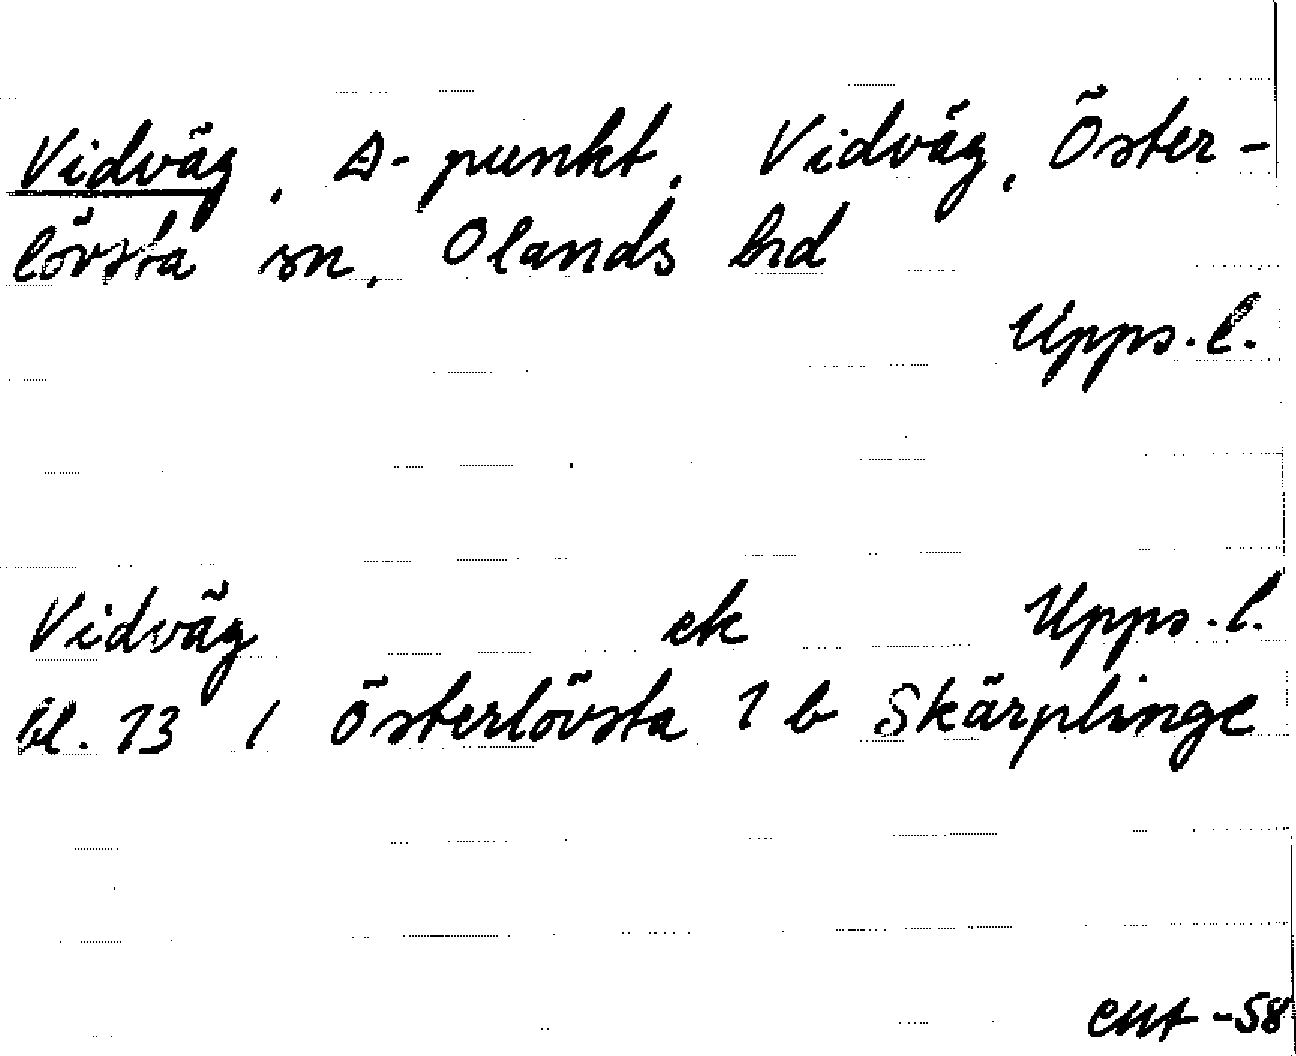 Vidväg, A-punkt, Vidväg, Öster-
lövsta sn, Olands hd
Upps. l.
Vidväg ek Upps. l.
bl. 13 / Österlövsta 1 b Skärplinge
-58